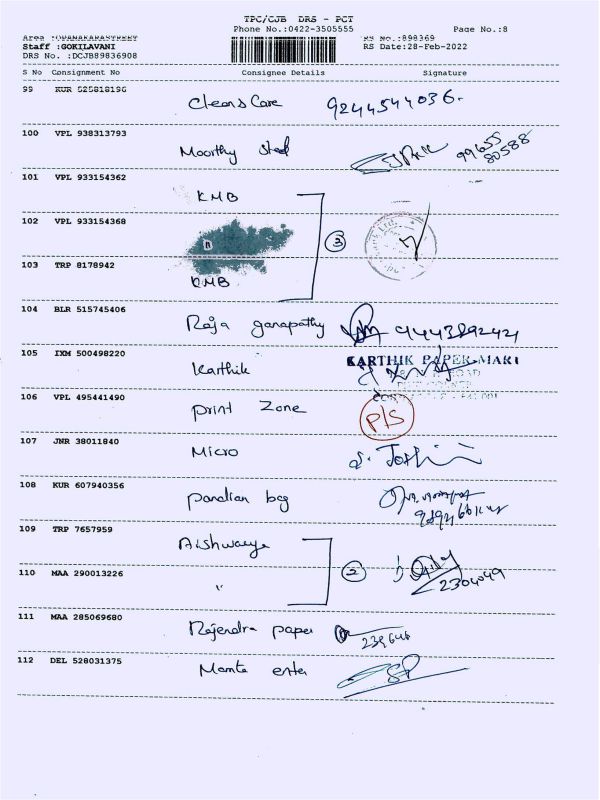 TPC/CJB DRS - PCT
Phone No.:0422-3505555 Page No.:8
Staff :GOKILAVANI RS No.:898369
DRS No. :DCJB89836908 RS Date:28-Feb-2022
S No Consignment No Consignee Details Signature
99 KUR 525818196
Cleans Care 9244544036.
100 VPL 938313793
Moorthy 99655
80588
101 VPL 933154362
KMB
102 VPL 933154368
3
103 TRP 8178942
KMB
104 BLR 515745406
Raja ganapathy
105 IXM 500498220
Karthik KARTHIK PAPER MART
106 VPL 495441490
print Zone P/S
107 JNR 38011840
Micro
108 KUR 607940356
pandian bag
109 TRP 7657959
Aishwarya
2
110 MAA 290013226
" 2304049
111 MAA 285069680
Rajendra paper 239646
112 DEL 528031375
Mamta